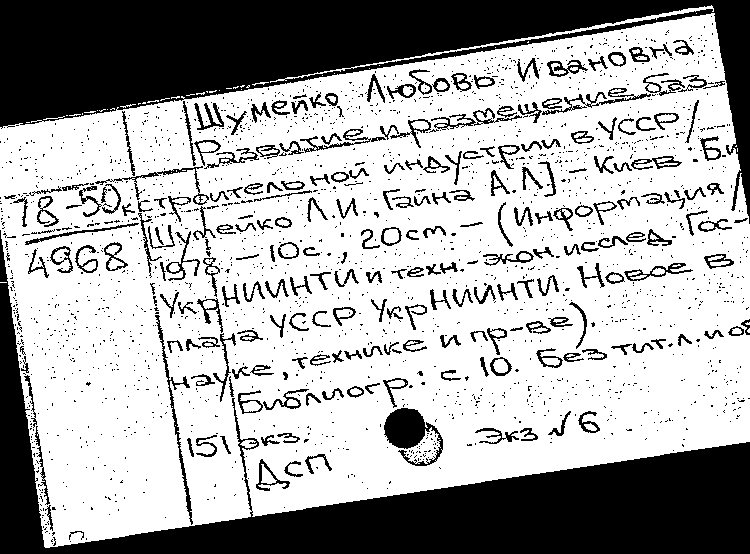 Шумейко Любовь Ивановна
Развитие и размещение баз
78-50к строительной индустрии в УССР /
4968 Шумейко Л.И., Гайна А.Л]. – Киев : Б.и
1978. – 10с. ; 20см. – (Информация /
УкрНИИНТИ и техн.-экон. исслед. Гос-
плана УССР УкрНИИНТИ. Новое в
науке, технике и пр-ве).
Библиогр.: с. 10. Без тит.л. и об
151 экз. Экз №6
ДСП